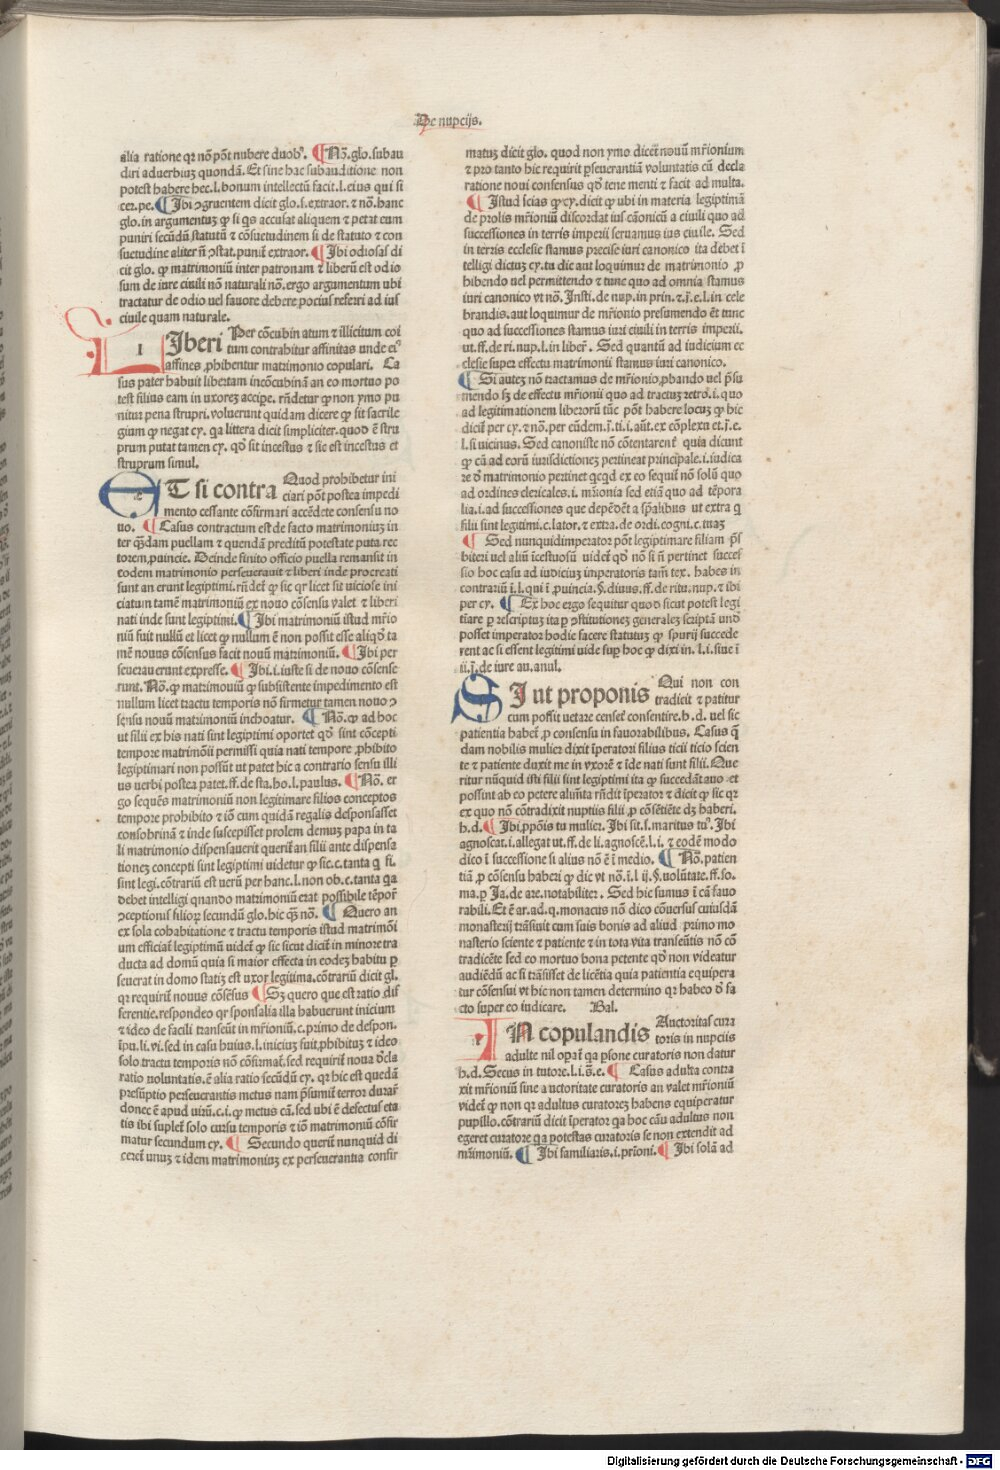 De nupcijs.
alia ratione qr nō pōt nubere duobꝰ. ¶ Nō. glo. subau
diri aduerbiuꝫ quondā. Et sine hac subauditione non
potest habere hec. l. bonum intellectū facit. l. eius qui si
cer. pe. ¶ Ibi ꝯgruentem dicit glo. s. extraor. ⁊ nō. hanc
glo. in argumentuꝫ ꝙ si qs accusat aliquem ⁊ petat eum
puniri secūdū statutū ⁊ cōsuetudinem si de statuto ⁊ con
suetudine aliter nō ꝯstat. punit̄ extraor. ¶ Ibi odiosas di
cit glo. ꝙ matrimoniū inter patronam ⁊ liberū est odio
sum de iure ciuili nō naturali nō. ergo argumentum ubi
tractatur de odio uel fauore debere pocius referri ad ius
ciuile quam naturale.
LIberi Per cōcubinatum ⁊ illicitum coi
tum contrahitur affinitas unde eiꝰ
affines ꝓhibentur matrimonio copulari. Ca
sus pater habuit libertam in cōcubinā an eo mortuo po
test filius eam in uxoreꝫ accipe. rn̄detur ꝙ non ymo pu
nitur pena strupri. voluerunt quidam dicere ꝙ sit sacrile
gium ꝙ negat cy. qa littera dicit simpliciter. quod ē stru
prum putat tamen cy. qꝫ sit incestus ⁊ sic est incestus et
struprum simul.
ET si contra Quod prohibetur ini
ciari pōt postea impedi
mento cessante cōfirmari accēdēte consensu no
uo. ¶ Casus contractum est de facto matrimoniuꝫ in
ter qꝫdam puellam ⁊ quendā preditū potestate puta rec
torem ꝓuincie. Deinde finito officio puella remansit in
eodem matrimonio perseuerauit ⁊ liberi inde procreati
sunt an erunt legiptimi. rn̄det̄ ꝙ sic qr licet sit uiciose ini
ciatum tamē matrimoniū ex nouo cōsensu valet ⁊ liberi
nati inde sunt legiptimi. ¶ Ibi matrimoniū istud mr̄io
niū fuit nullū et licet ꝙ nullum ē non possit esse aliqd̄ ta
mē nouus cōsensus facit nouū matrimoniū. ¶ Ibi per
seuerauerunt expresse. ¶ Ibi. i. iuste si de nouo cōsense
runt. Nō. ꝙ matrimoniū ꝙ subsistente impedimento est
nullum licet tractu temporis nō firmetur tamen nouo ꝯ
sensu nouū matrimoniū inchoatur. ¶ Nō. ꝙ ad hoc
ut filii ex his nati sint legiptimi oportet qd̄ sint cōcepti
tempore matrimōii permissi quia nati tempore ꝓhibito
legiptimari non possūt ut patet hic a contrario sensu illi
us verbi postea patet. ff. de sta. ho. l. paulus. ¶ Nō. er
go sequēs matrimoniū non legitimare filios conceptos
tempore prohibito ⁊ iō cum quidā regalis desponsasset
consobrinā ⁊ inde suscepisset prolem demuꝫ papa in ta
li matrimonio dispensauerit querit̄ an filii ante dispensa
tioneꝫ concepti sint legiptimi uidetur ꝙ sic. c. tanta q. fi.
sint legi. cōtrariū est uerū per hanc. l. non ob. c. tanta qa
debet intelligi quando matrimoniū erat possibile tēpor̄
ꝯceptionis filioꝝ secundū glo. hic qꝫ nō. ¶ Quero an
ex sola cohabitatione ⁊ tractu temporis istud matrimōi
um efficiat̄ legiptimū uidet̄ ꝙ sic sicut dicit̄ in minore tra
ducta ad domū quia si maior effecta in eodeꝫ habitu ꝑ
seuerat in domo statiꝫ est uxor legitima. cōtrariū dicit gl.
qr requirit̄ nouus cōsēsus ¶ Sꝫ quero que est ratio dif
ferentie. respondeo qr sponsalia illa habuerunt inicium
⁊ ideo de facili transeūt in mr̄imoniū. c. primo de despon.
īpu. li. vi. sed in casu huius. l. iniciuꝫ fuit ꝓhibituꝫ ⁊ ideo
solo tractu temporis nō cōfirmat̄. sed requirit̄ noua d̄cla
ratio voluntatis. ē alia ratio secūdū cy. qr hic est quedā
presūptio perseuerantis metus nam p̄sumit̄ terror durar̄
donec ē apud uirū. c. i. ꝙ metus cā. sed ubi ē defectus eta
tis ibi suplet̄ solo cursu temporis ⁊ iō matrimoniū cōfir
matur secundum cy. ¶ Secundo querit̄ nunquid di
ceret̄ unuꝫ ⁊ idem matrimoniuꝫ ex perseuerantia confir
matuꝫ dicit glo. quod non ymo dicet̄ nouū mr̄ionium
⁊ pro tanto hic requirit ꝑseuerantiā voluntatis cū decla
ratione noui consensus qd̄ tene menti ⁊ facit ad multa.
¶ Istud scias ꝙ cy. dicit ꝙ ubi in materia legiptimā
de prolis mr̄ioniū discordat ius cānonicū a ciuili quo ad
successiones in terris imperii seruamus ius ciuile. Sed
in terris ecclesie stamus precise iuri canonico ita debet ī
telligi dictuꝫ cy. tu dic aut loquimur de matrimonio ꝓ
hibendo uel permittendo ⁊ tunc quo ad omnia stamus
iuri canonico vt nō. Insti. de nup. in prin. ⁊. j. e. l. in cele
brandis. aut loquimur de mr̄ionio presumendo ēt tunc
quo ad successiones stamus iuri ciuili in terris imperii.
ut. ff. de ri. nup. l. in liber̄. Sed quantū ad iudicium ec
clesie super effectu matrimonii stamus iuri canonico.
¶ Si auteꝫ nō tractamus de mr̄ionio ꝓbando uel p̄su
mendo sꝫ de effectu mr̄ionii quo ad tractuꝫ retro. i. quo
ad legitimationem liberorū tūc pōt habere locuꝫ ꝙ hic
dicit̄ per cy. ⁊ nō. per eūdem. j. ti. i. aūt. ex cōplexu et. j. e.
l. si uicinus. Sed canoniste nō cōtentarent̄ quia dicunt
ꝙ cū ad eorū iurisdictioneꝫ pertineat principale. i. iudica
re d̄ matrimonio pertinet qcqd ex eo sequit̄ nō solū quo
ad ordines clericales. i. mr̄ionia sed etiā quo ad tēpora
lia. i. ad successiones que depēdēt a sp̄alibus ut extra q
filii sint legitimi. c. lator. ⁊ extra. de ordi. cogni. c. tuaꝫ
¶ Sed nunquid imperator pōt legiptimare filiam p̄s
biteri uel aliū īcestuosū uidet̄ qd̄ nō si n̄ pertinet succes
sio hoc casu ad iudiciuꝫ imperatoris tam̄ tex. habes in
contrariū ī. l. qui ī ꝓuincia. §. diuus. ff. de ritu. nup. ⁊ ibi
per cy. ¶ Ex hoc ergo sequitur quod sicut potest legi
tīare ꝑ rescriptuꝫ ita ꝑ ꝯstitutioneꝫ generaleꝫ scriptā und̄
posset imperator hodie facere statutuꝫ ꝙ spurij succede
rent ac si essent legitimi uide supꝫ hoc ꝙ dixi in. l. i. siue ī
ii. j. de iure au. anul.
SI ut proponis Qui non con
tradicit ⁊ patitur
cum possit uetare censet̄ consentire. h. d. uel sic
patientia habet̄ ꝓ consensu in fauorabilibus. Casus q̄
dam nobilis mulier dixit īperatori filius ticii ticio scien
te ⁊ patiente duxit me in vxorē ⁊ īde nati sunt filii. Que
ritur nūquid isti filii sint legiptimi ita ꝙ succedāt auo et
possint ab eo petere alimēta rn̄dit īperator ⁊ dicit ꝙ sic qr
ex quo nō cōtradixit nuptiis filii ꝓ cōsētiēte dꝫ haberi.
h. d. ¶ Ibi ꝓpōis tu mulier. Ibi sit. s. maritus tuꝰ. Ibi
agnoscat. i. allegat ut. ff. de li. agnoscē. l. i. ⁊ eodē modo
dico ī successione si alius nō ē ī medio. ¶ Nō. patien
tiā ꝓ cōsensu haberi ꝙ dic vt nō. ī. l ij. §. volūtate. ff. so.
ma. ꝑ Ja. de are. notabiliter. Sed hic sumus ī cā fauo
rabili. Et ē ar. ad. q. monacus nō dico cōuersus cuiusdā
monasterij trāsiuit cum suis bonis ad aliud primo mo
nasterio sciente ⁊ patiente ⁊ in tota vita transeūtis nō cō
tradicēte sed eo mortuo bona petente qd̄ non videatur
audiēdū ac si trāsisset de licētia quia patientia equipera
tur cōsensui vt hic non tamen determino qr habeo d̄ fa
cto super eo iudicare. Bal.
IN copulandis Auctoritas cura
toris in nupciis
adulte nil oꝑat̄ qa ꝑsone curatoris non datur
h. d. Secus in tutore. l. i. ꝫ. e. ¶ Casus adulta contra
xit mr̄ioniū sine auctoritate curatoris an valet mr̄ioniū
videt̄ ꝙ non qr adultus curatoreꝫ habens equiperatur
pupillo. cōtrariū dicit īperator qa hoc cāu adultus non
egeret curatore qa potestas curatoris se non extendit ad
mr̄imoniū. ¶ Ibi familiaris. i. pr̄ioni. ¶ Ibi solā ad
Digitalisierung gefördert durch die Deutsche Forschungsgemeinschaft - DFG